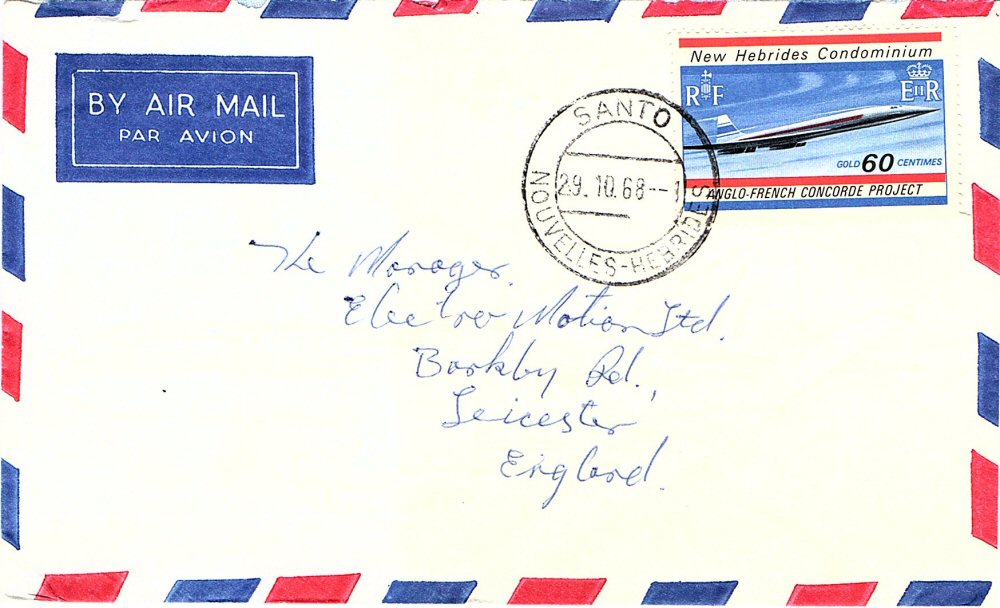 BY AIR MAIL
PAR AVION
New Hebrides Condominium
RF
EIIR
GOLD 60 CENTIMES
ANGLO-FRENCH CONCORDE PROJECT
SANTO
29.10.68--1
NOUVELLES-HEBRIDES
The Manager.
Electro Motion Ltd.
Barkby Rd.,
Leicester
England.